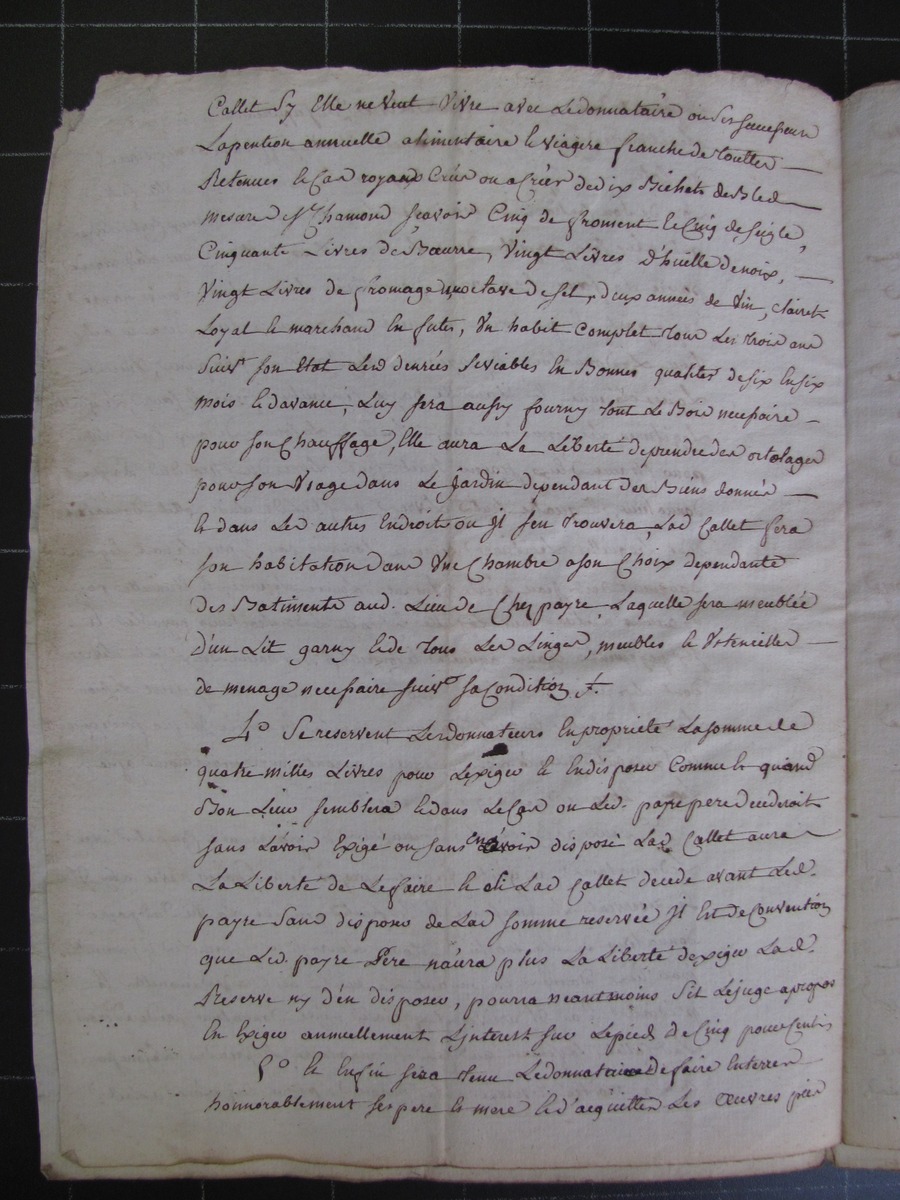 Callet Sy Elle ne Veut Vivre avec Ledonnataire ou Ses successeurs
Lapention annuelle alimentaire et viagere franche de touttes
Retenues et Cas royaux Créés ou a Créer de dix Bichets de Bled
mesure St. Chamond scavoir Cinq de froment et Cinq de seigle,
Cinquante Livres de Beurre, Vingt Livres d'huille de noix,
Vingt Livres de fromage, un octave de sel, deux années de Vin, clairet
Loyal et marchand En futes, Un habit complet tous Les trois ans
suivt. son Etat Lesd denrées Seviables En Bonnes qualités de six En six
mois et davance, Luy sera aussy fourny tout Le Bois necessaire
pour son Chauffage, Elle aura La Liberté de prendre des ortolages
pour son Usage dans Le Jardin dependant des Biens donnés
et dans Les autres Endroits ou Jl sen trouvera, Lad Callet fera
son habitation dans Une Chambre a son Choix dependante
des Batiments aud. Lieu de Chez payre, Laquelle sera meublée
d'un Lit garny et de tous Les Linges, meubles et Ustencilles
de menage necessaire suivt. sa Condition
4º Se reservent Lesdonnateurs En propriete La somme de
quatre milles Livres pour Lexiger et En disposer Comme et quand
Bon Leur semblera et dans Le Cas ou Led. payre pere decederoit
sans Lavoir Exigé ou sans En avoir disposé Lad Callet aura
La Liberté de Le faire et si Lad Callet decede avant Led.
payre sans disposer de Lad somme reservée Jl Est de Convention
que Led. payre Pere n'aura plus La Liberté dexiger Lad.
Reserve ny d'en disposer, pourra neantmoins Sil Le juge a propos
En Exiger annuellement L'jnterest sur Le pied de Cinq pour Cent
5º Et Enfin sera tenu Ledonnataire de faire Enterrer
honnorablement ses pere et mere et d'acquitter Les Œuvres pies